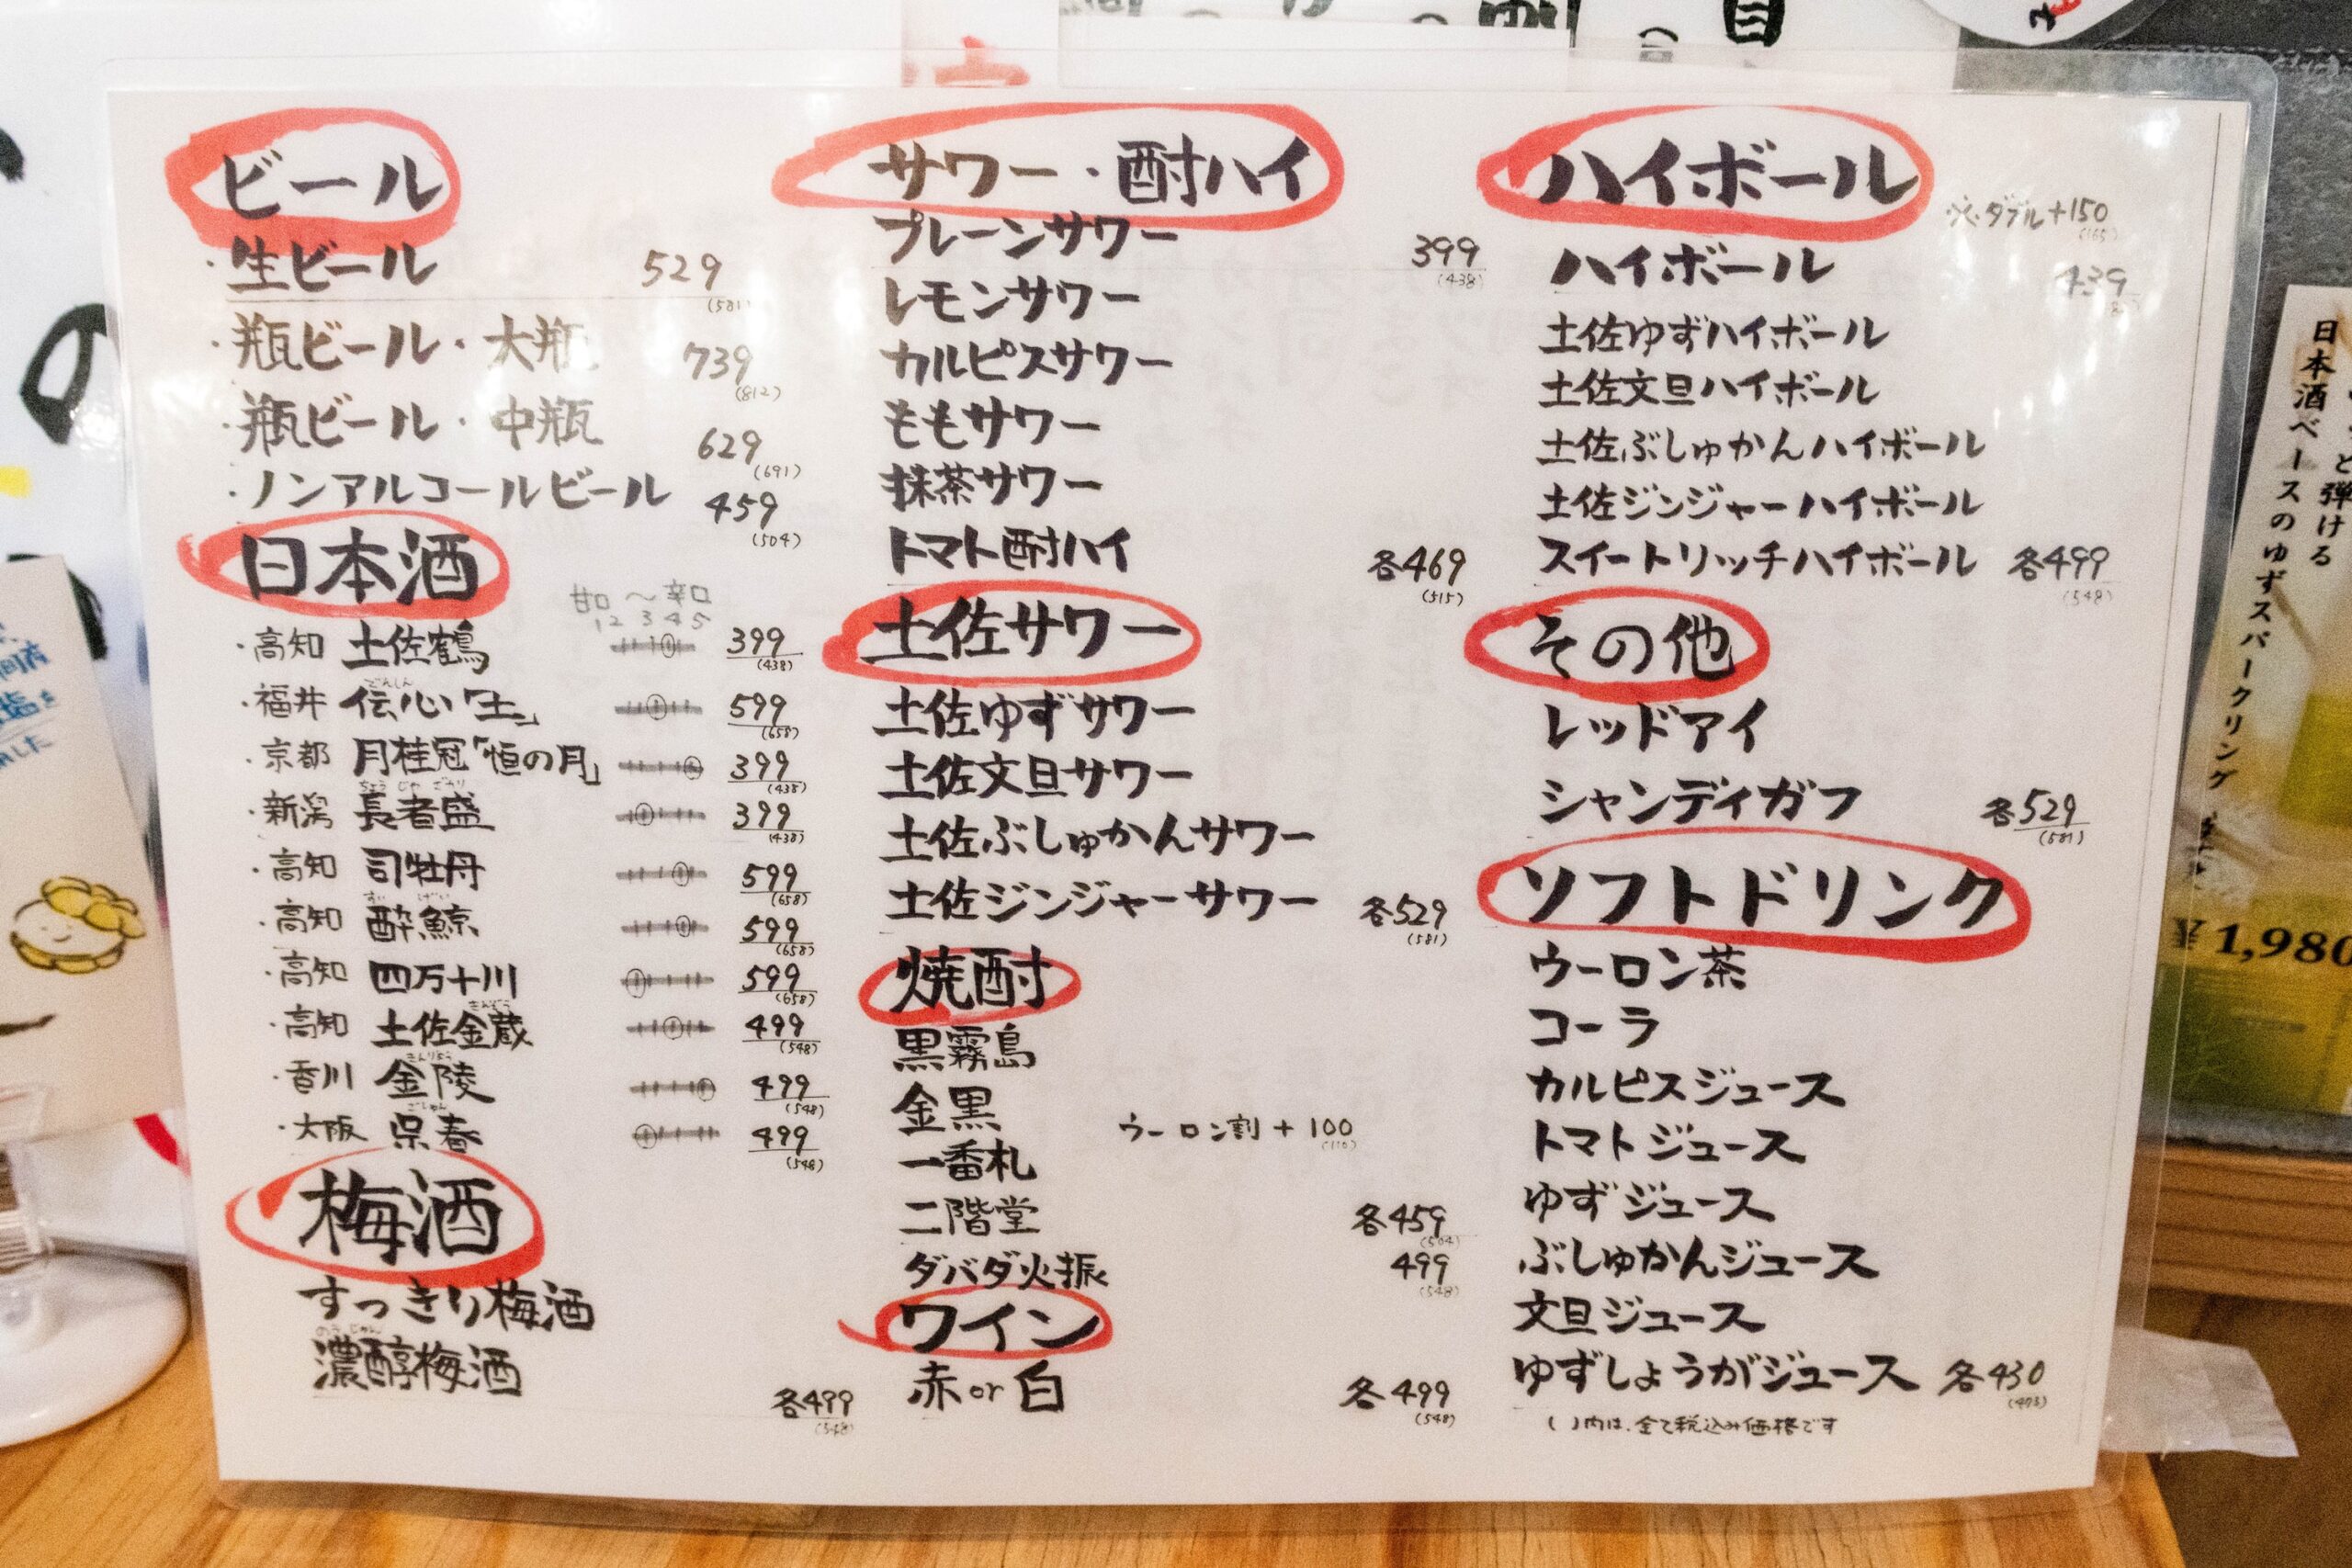 ビール
・生ビール 529
(581)
・瓶ビール・大瓶 739
(812)
・瓶ビール・中瓶 629
(691)
・ノンアルコールビール 459
(504)
日本酒
甘口 〜 辛口
1 2 3 4 5
・高知 土佐鶴 399
(438)
・福井 伝心「土」 599
でんしん
(658)
・京都 月桂冠「恒の月」 399
(438)
・新潟 長者盛 399
ちょうじゃざかり
(438)
・高知 司牡丹 599
(658)
・高知 酔鯨 599
すいげい
(658)
・高知 四万十川 599
(658)
・高知 土佐金蔵 499
きんぞう
(548)
・香川 金陵 499
きんりょう
(548)
・大阪 呉春 499
ごしゅん
(548)
梅酒
すっきり梅酒
のうじゅん
濃醇梅酒
各499
(548)
サワー・酎ハイ
プレーンサワー 399
(438)
レモンサワー
カルピスサワー
ももサワー
抹茶サワー
トマト酎ハイ 各469
(515)
土佐サワー
土佐ゆずサワー
土佐文旦サワー
土佐ぶしゅかんサワー
土佐ジンジャーサワー 各529
(581)
焼酎
黒霧島
金黒
ウーロン割 + 100
(110)
一番札
二階堂 各459
(504)
ダバダ火振 499
(548)
ワイン
赤 or 白 各499
(548)
ハイボール
※ダブル+150
(165)
ハイボール 439
土佐ゆずハイボール
土佐文旦ハイボール
土佐ぶしゅかんハイボール
土佐ジンジャーハイボール
スイートリッチハイボール 各499
(548)
その他
レッドアイ
シャンディガフ 各529
(581)
ソフトドリンク
ウーロン茶
コーラ
カルピスジュース
トマトジュース
ゆずジュース
ぶしゅかんジュース
文旦ジュース
ゆずしょうがジュース 各430
(473)
( )内は、全て税込み価格です
と弾ける
日本酒ベースのゆずスパークリング
¥1,980